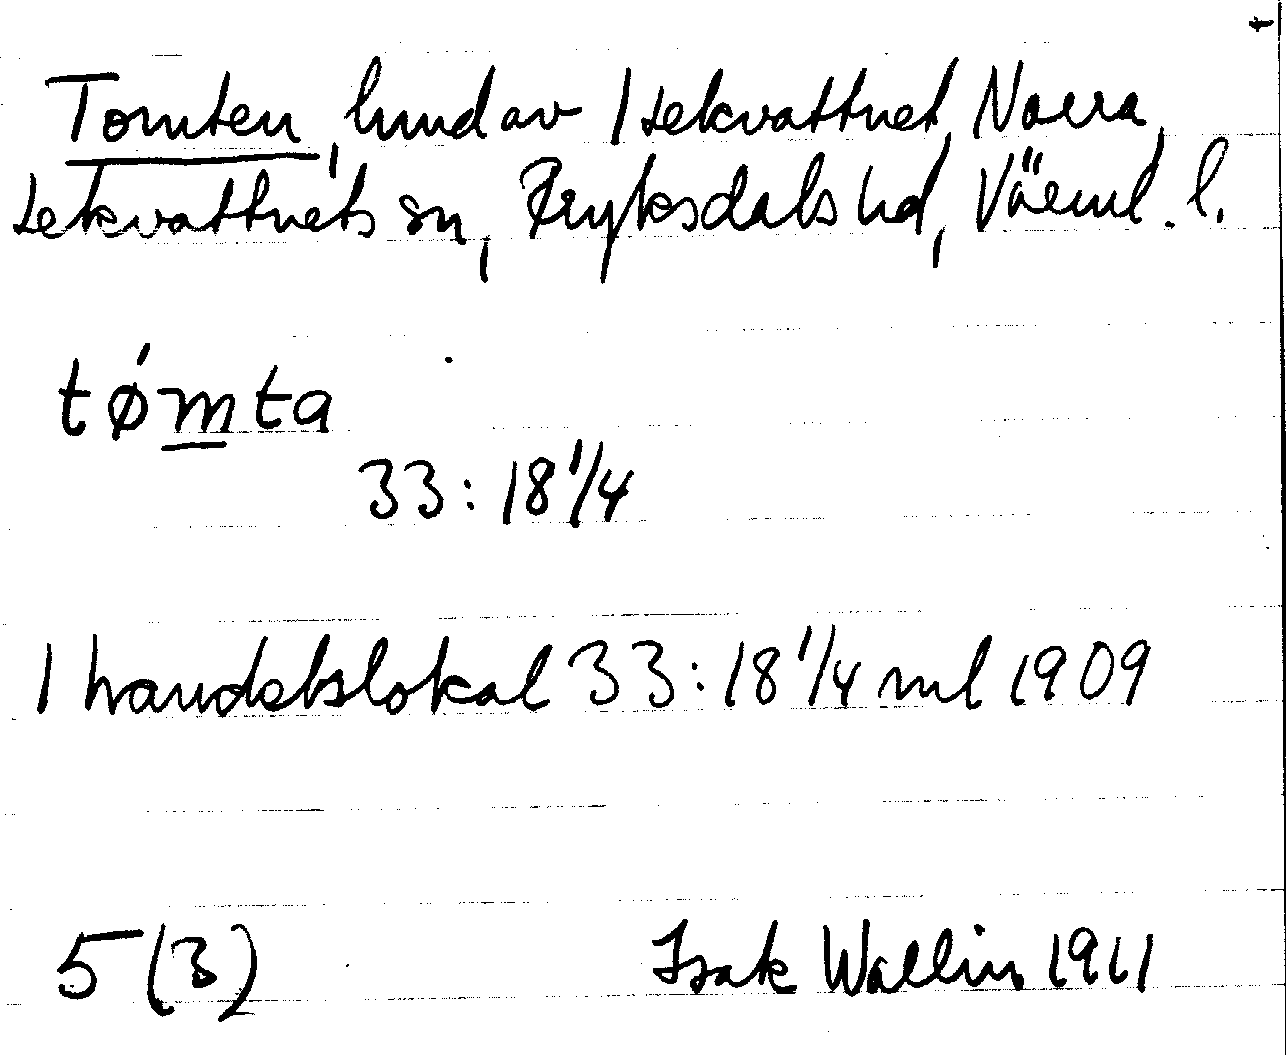 Tomten, hmd av 1 Lekvattnet, Norra,
Lekvattnets sn, Fryksdals hd, Värml. l.
tǿm̲ta
33:18 1/4
1 handelslokal 33:18 1/4 mtl 1909
5 (3) Isak Wallin 1911